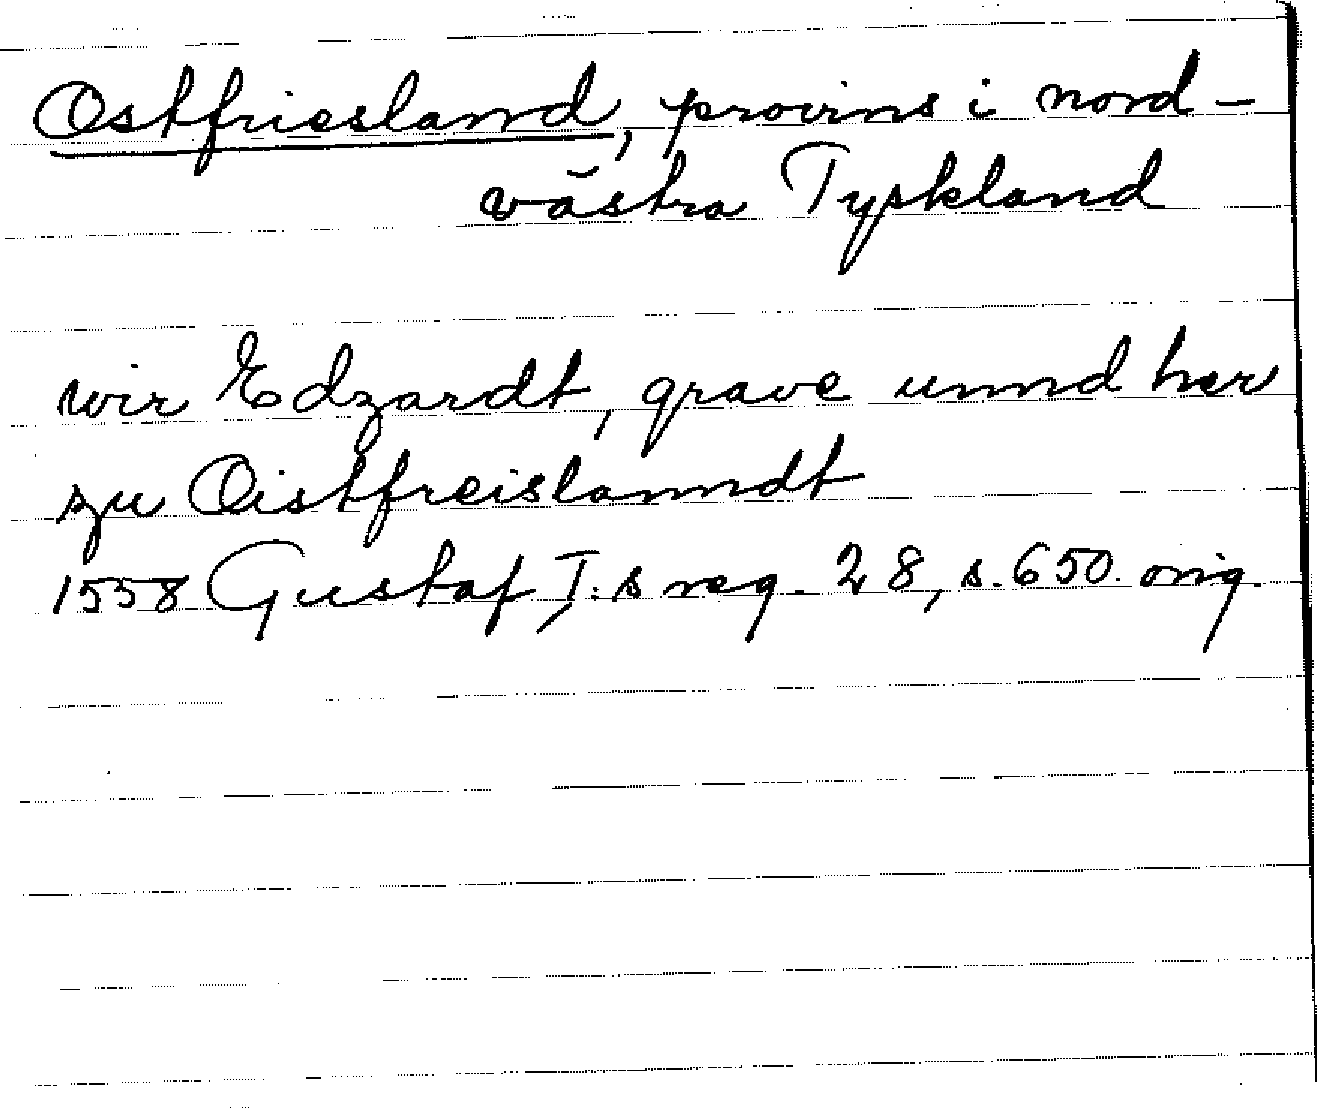 Ostfriesland, provins i nord-
västra Tyskland
wir Edzardt, grave unnd her
zu Oistfreislanndt
1558 Gustaf I:s reg. 28, s. 650. orig.